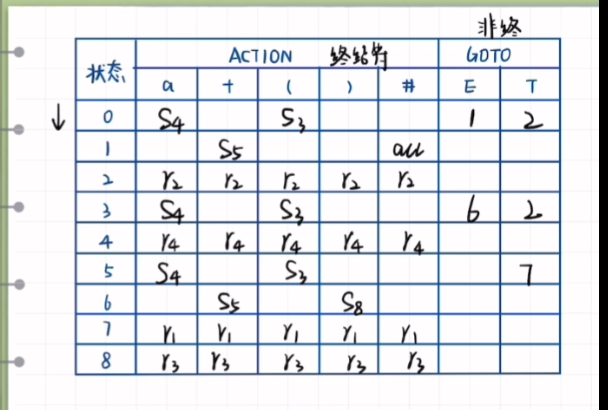 非终
ACTION 终结符 GOTO
状态 a + ( ) # E T
↓ 0 S4 S3 1 2
1 S5 acc
2 r2 r2 r2 r2 r2
3 S4 S3 6 2
4 r4 r4 r4 r4 r4
5 S4 S3 7
6 S5 S8
7 r1 r1 r1 r1 r1
8 r3 r3 r3 r3 r3